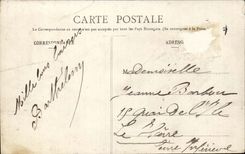 CARTE POSTALE
La Correspondance au recto n'est pas acceptée par tous les Pays Étrangers. (Se renseigner à la Poste)
CORRESPONDANCE
ADRESSE
Mille bons baisers
Barthélemy
Mademoiselle
Jeanne
15 Quai de
Le Havre
Seine Inférieure